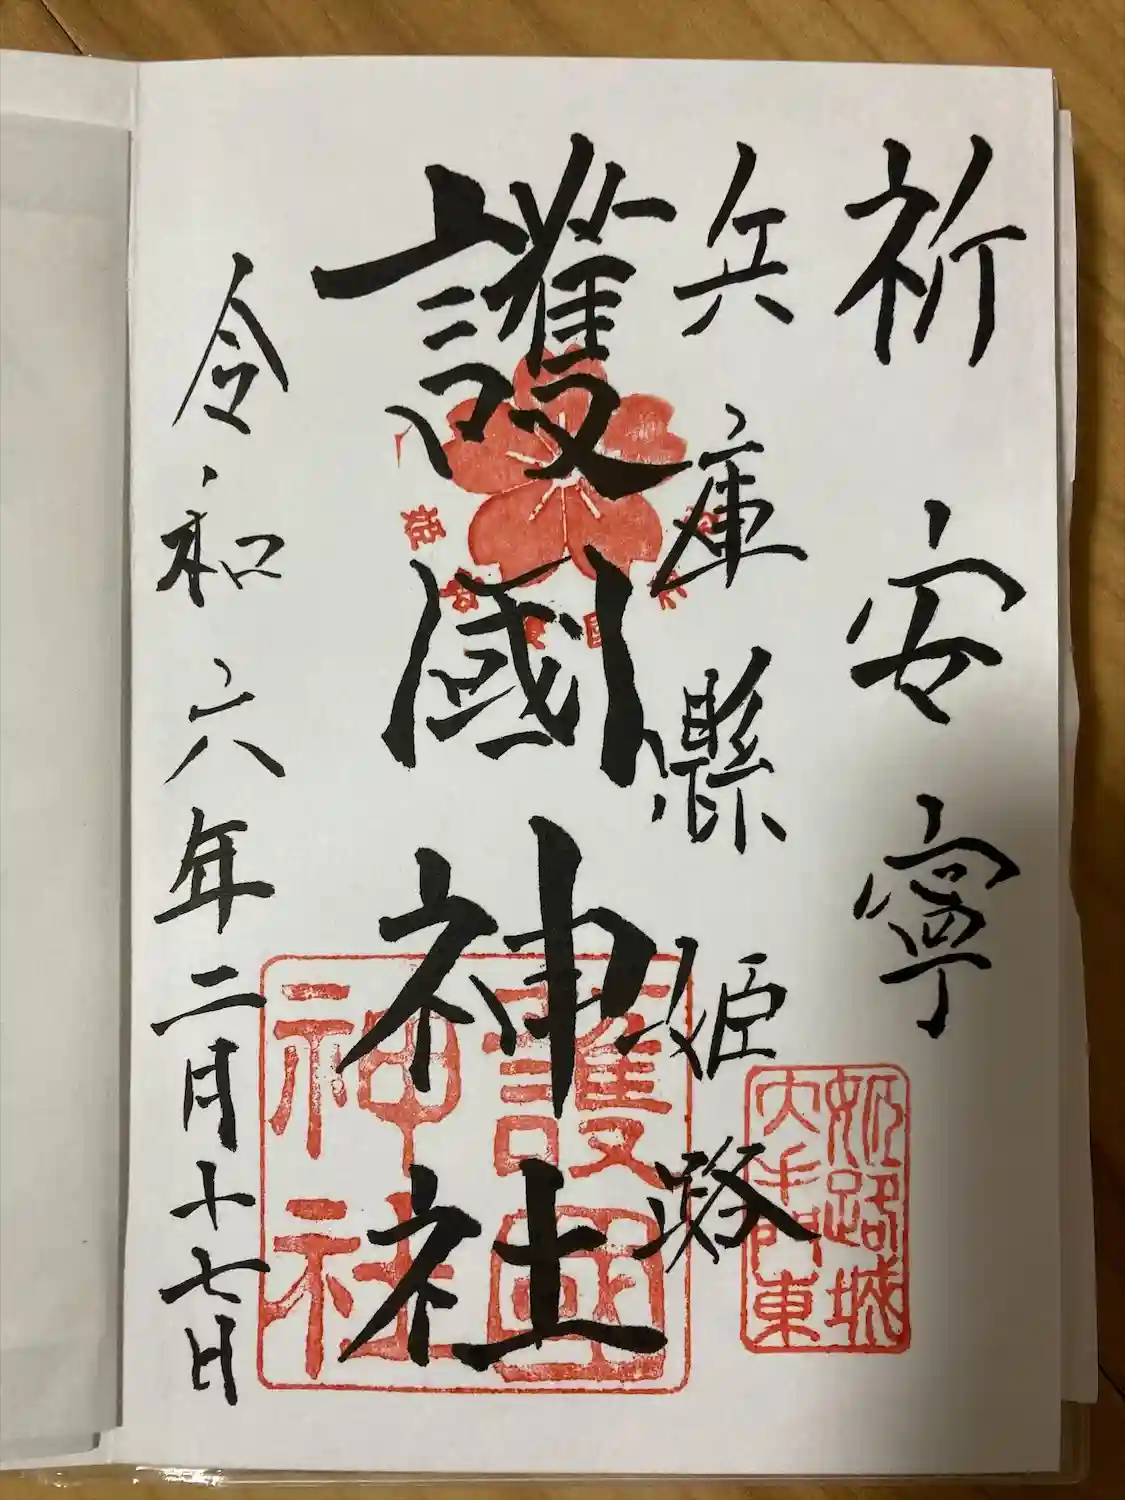 祈安寧
兵庫縣姫路
護國神社
令和六年二月十七日
姫路城
大手門東
護國
神社